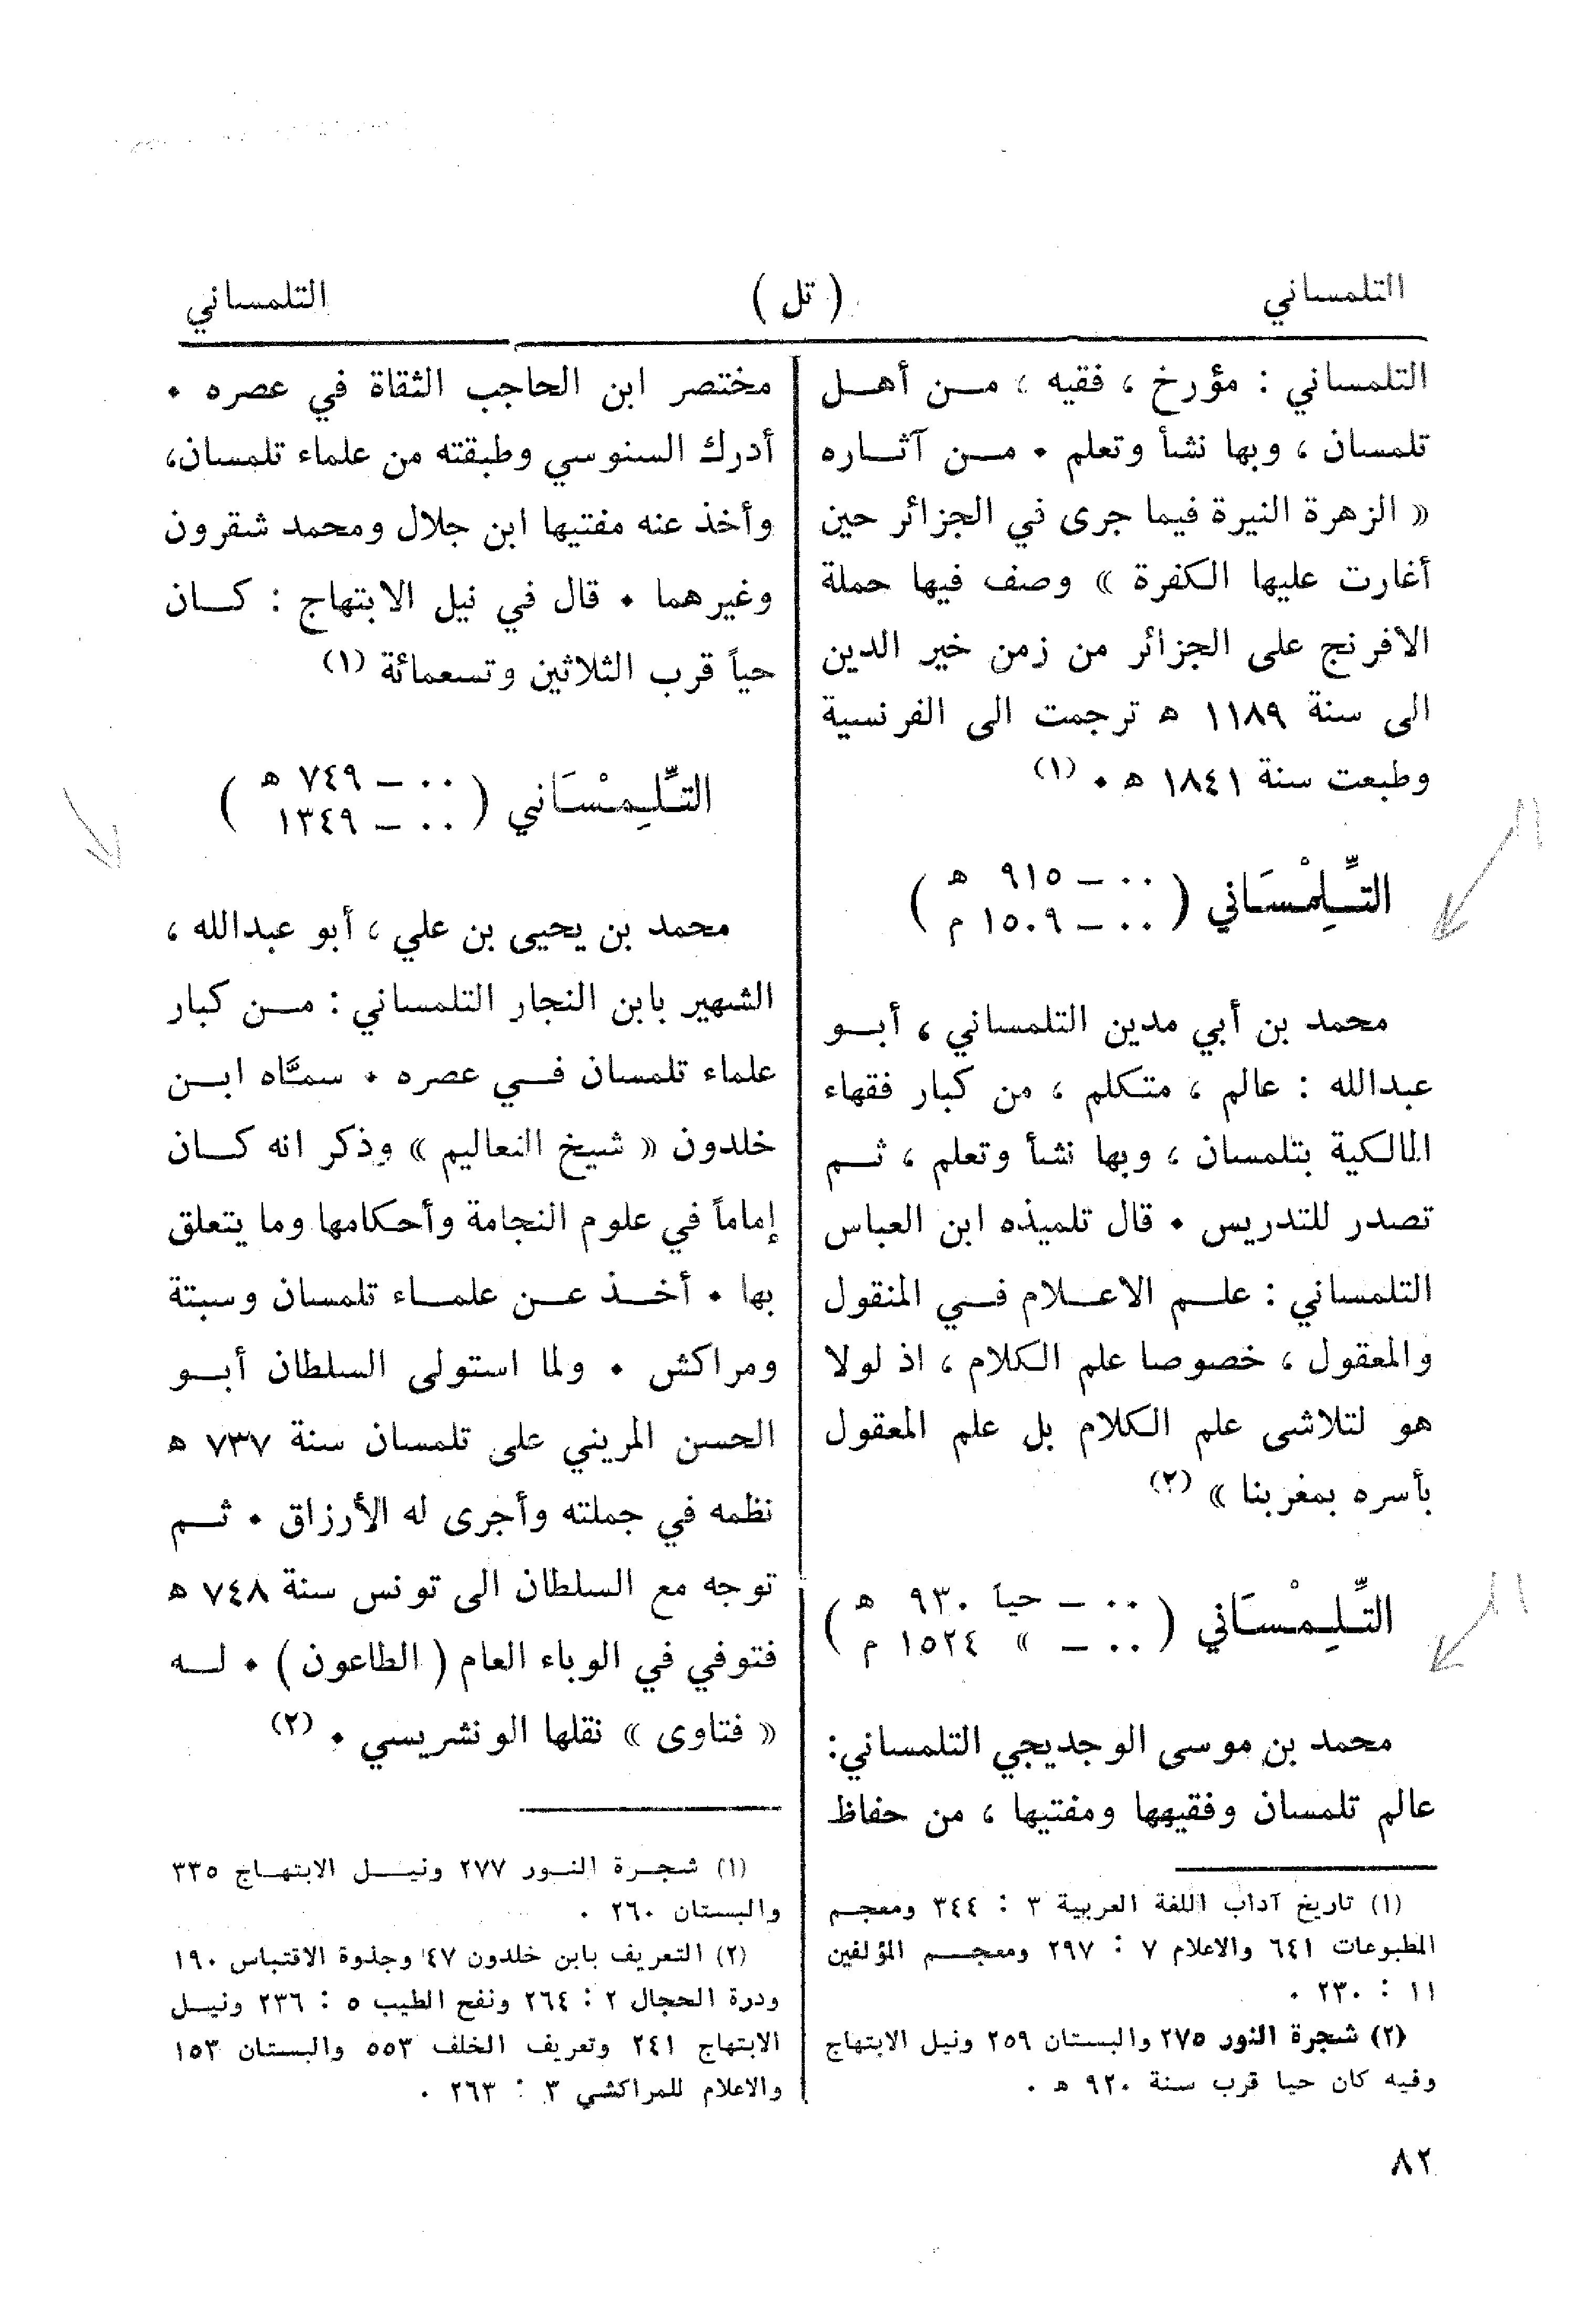 التلمساني ( تل ) التلمساني
التلمساني : مؤرخ ، فقيه ، مـن أهـل
تلمسان ، وبها نشأ وتعلم . مـن آثـاره
« الزهرة النيرة فيما جرى في الجزائر حين
أغارت عليها الكفرة » وصف فيها حملة
الافرنج على الجزائر من زمن خير الدين
الى سنة ١١٨٩ هـ ترجمت الى الفرنسية
وطبعت سنة ١٨٤١ هـ . (١)
التِّلِمْسَاني ( ٠٠ – ٩١٥ هـ
٠٠ – ١٥٠٩ م )
محمد بن أبي مدين التلمساني ، أبـو
عبدالله : عالم ، متكلم ، من كبار فقهاء
المالكية بتلمسان ، وبها نشأ وتعلم ، ثـم
تصدر للتدريس . قال تلميذه ابن العباس
التلمساني : علـم الاعـلام فـي المنقول
والمعقول ، خصوصا علم الكلام ، اذ لولا
هو لتلاشى علم الكلام بل علم المعقول
بأسره بمغربنا » (٢)
التِّلِمْسَاني ( ٠٠ – حياً ٩٣٠ هـ
٠٠ – » ١٥٢٤ م )
محمد بن موسى الوجديجي التلمساني:
عالم تلمسان وفقيهها ومفتيها ، من حفاظ
(١) تاريخ آداب اللغة العربية ٣ : ٣٤٤ ومعجم
المطبوعات ٦٤١ والاعلام ٧ : ٢٩٧ ومعجـم المؤلفين
١١ : ٢٣٠ .
(٢) شجرة النور ٢٧٥ والبستان ٢٥٩ ونيل الابتهاج
وفيه كان حيا قرب سنة ٩٢٠ هـ .
مختصر ابن الحاجب الثقاة في عصره .
أدرك السنوسي وطبقته من علماء تلمسان،
وأخذ عنه مفتيها ابن جلال ومحمد شقرون
وغيرهما . قال في نيل الابتهاج : كـان
حياً قرب الثلاثين وتسعمائة (١)
التِّلِمْسَاني ( ٠٠ – ٧٤٩ هـ
٠٠ – ١٣٤٩ )
محمد بن يحيى بن علي ، أبو عبدالله ،
الشهير بابن النجار التلمساني : مـن كبار
علماء تلمسان فـي عصره . سمَّاه ابـن
خلدون « شيخ التعاليم » وذكر انه كـان
إماماً في علوم النجامة وأحكامها وما يتعلق
بها . أخـذ عـن علمـاء تلمسان وسبتة
ومراكش . ولما استولى السلطان أبـو
الحسن المريني على تلمسان سنة ٧٣٧ هـ
نظمه في جملته وأجرى له الأرزاق . ثـم
توجه مع السلطان الى تونس سنة ٧٤٨ هـ
فتوفي في الوباء العام ( الطاعون ) . لـه
« فتاوى » نقلها الونشريسي . (٢)
(١) شجـرة النـور ٢٧٧ ونيـل الابتهـاج ٣٣٥
والبستان ٢٦٠ .
(٢) التعريف بابن خلدون ٤٧ وجذوة الاقتباس ١٩٠
ودرة الحجال ٢ : ٢٦٤ ونفح الطيب ٥ : ٢٣٦ ونيـل
الابتهاج ٢٤١ وتعريف الخلف ٥٥٣ والبستان ١٥٣
والاعلام للمراكشي ٣ : ٢٦٣ .
٨٢